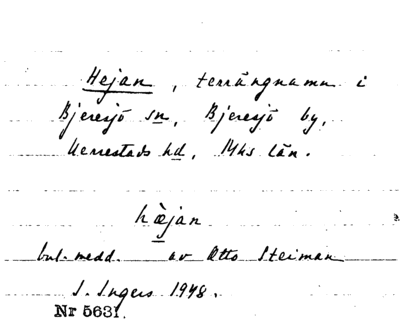 Hejan, terrängnamn i
Bjeresjö sn, Bjeresjö by,
Herrestads hd, Mhs län.
hæ̀jan
bul. medd. av Otto Steiman
I. Ingers 1948.
Nr 5631.